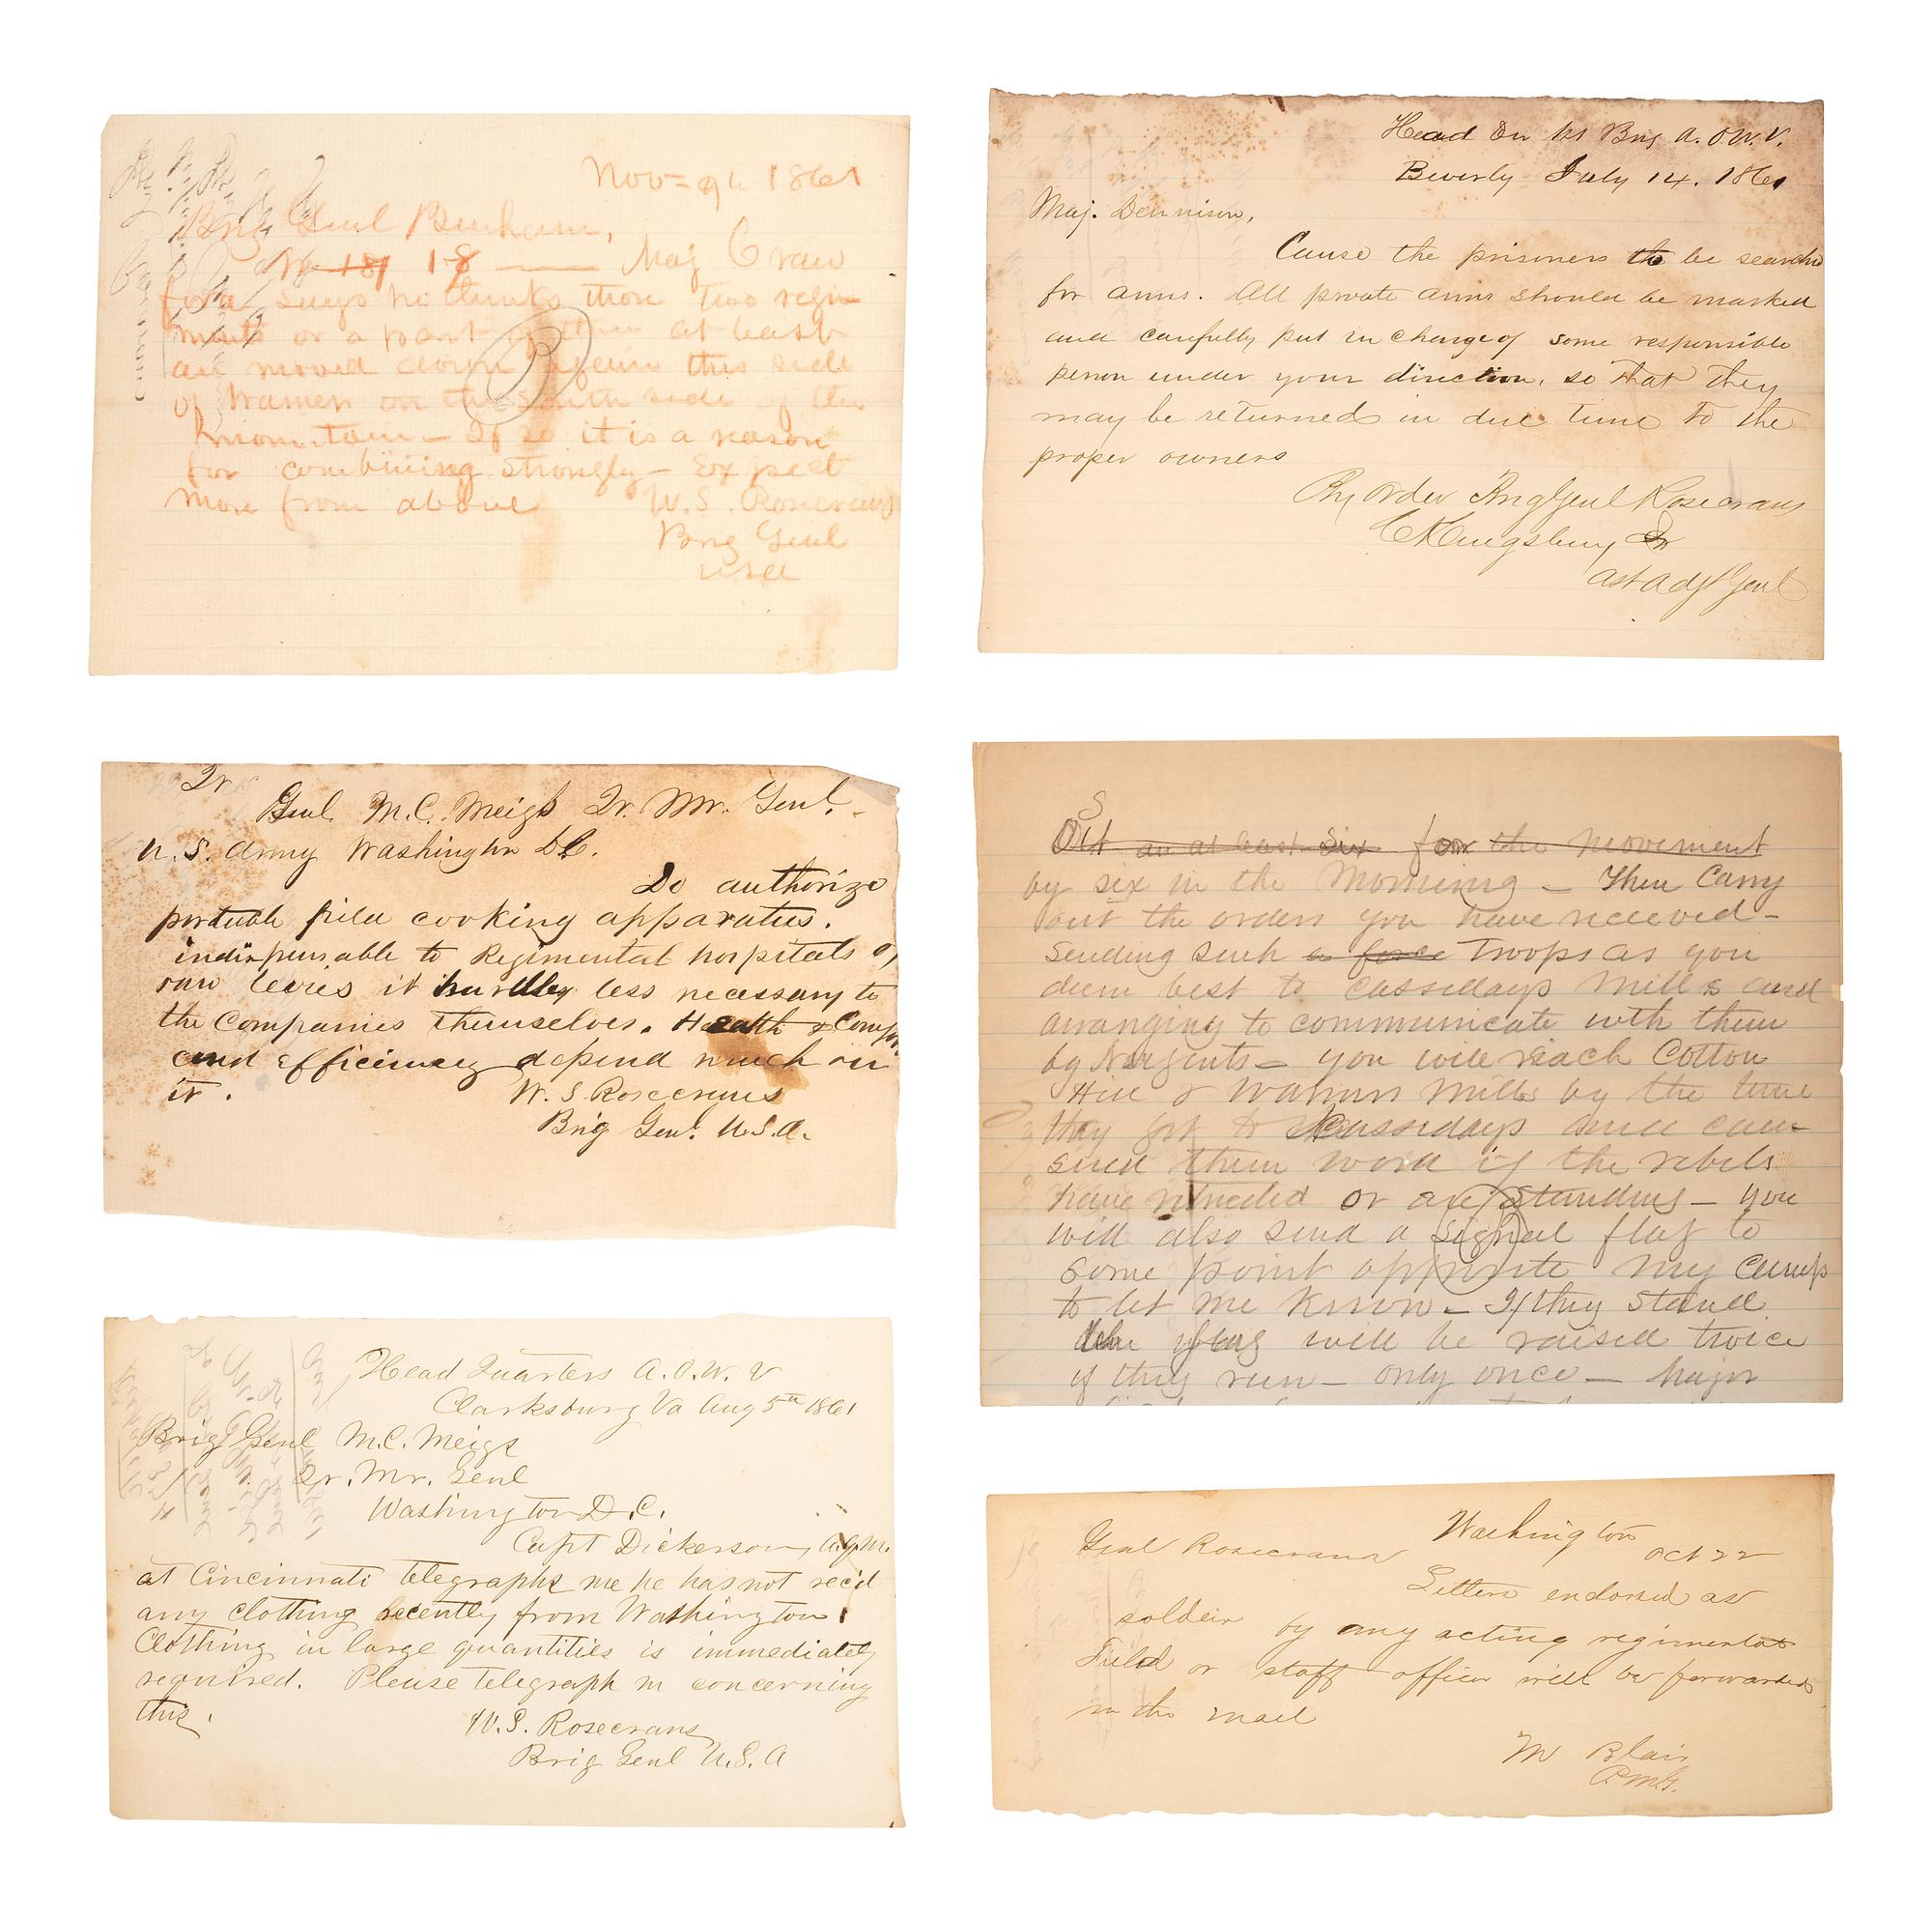 Nov 9th 1861
Brig Genl Benham,
18 — Maj Craw
ford says he thinks those two regi
ments or a part of them at least
are moved down again this side
of Warners on the South side of the
mountain — If so it is a reason
for combining strongly — Expect
more from above W. S. Rosecrans
Brig Genl
USA
Head Qu 1st Brig A. O. W. V.
Beverly July 14. 1861
Maj. Dennison,
Cause the prisoners to be searched
for arms. All private arms should be marked
and carefully put in charge of some responsible
person under your direction, so that they
may be returned in due time to the
proper owners
By Order Brig Genl Rosecrans
C Kingsbury Jr
Ast Adjt Genl
Qr
Genl. M. C. Meigs Qr. Mr. Genl.
U. S. Army Washington D.C.
Do authorize
portable field cooking apparatus.
indispensable to Regimental hospitals of
raw levies it hardley less necessary to
the Companies themselves. Health &
and efficiency depend much on
it.
W. S. Rosecrans
Brig Genl. U.S.A.
S
Out an at least six for the movement
by six in the Morning — Then Carry
out the orders you have received —
Sending such a force troops as you
deem best to Cassidays Mills and
arranging to communicate with them
by Nugents — You will reach Cotton
Hill & Warners Mills by the time
they get to Cassidays and can
send them word if the rebels
have retreated or are standing — You
will also send a signal flag to
some point opposite my Camp
to let me know — If they stand
the flag will be raised twice
if they run — only once — Major
Head Quarters A. O. W. V
Clarksburg Va Aug 5th 1861
Brig Genl M. C. Meigs
Qr. Mr. Genl
Washington D. C.
Capt Dickerson, A.Q.M.
at Cincinnati telegraphs me he has not rec'd
any clothing recently from Washington
Clothing in large quantities is immediately
required. Please telegraph m concerning
this.
W. S. Rosecrans
Brig Genl U. S. A
Washington
Genl Rosecrans Oct 22
Letters endorsed as
soldier by any acting regimental
Field or staff officer will be forwarded
in the mail
M Blair
P.M.G.